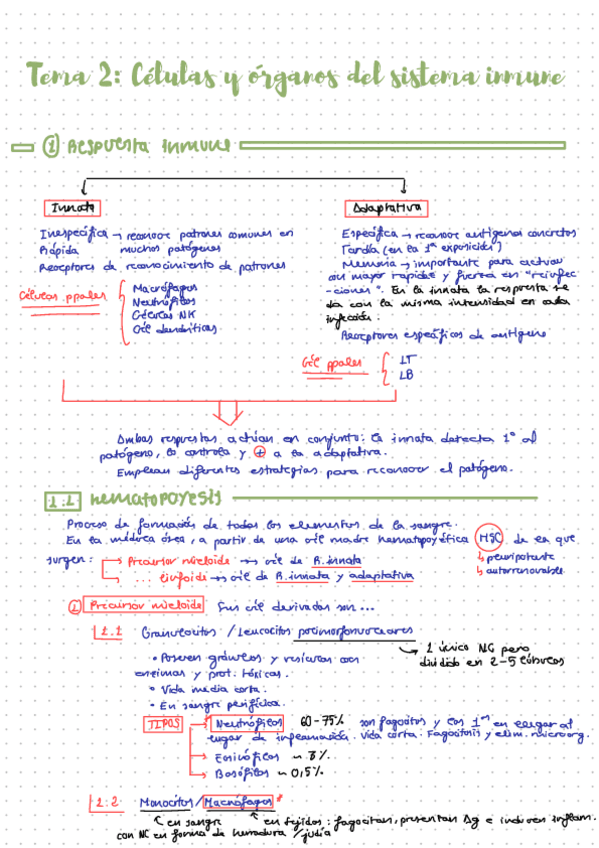 Tema 2: Células y órganos del sistema inmune
① Respuesta Inmune
Innata
Adaptativa
Inespecífica → reconoce patrones comunes en
Rápida muchos patógenos
Receptores de reconocimiento de patrones
Células ppales
Macrófagos
Neutrófilos
Células NK
Cél dendríticas
Específica → reconoce antígenos concretos
Tardía (en la 1ª exposición)
Memoria → importante para actuar
con mayor rapidez y fuerza en "reinfec
-ciones". En la innata la respuesta se
da con la misma intensidad en cada
infección.
Receptores específicos de antígeno
Cél ppales
LT
LB
Ambas respuestas actúan en conjunto: la innata detecta 1º al
patógeno, lo controla y + a la adaptativa.
Emplean diferentes estrategias para reconocer el patógeno.
1.1 Hematopoyesis
Proceso de formación de todos los elementos de la sangre.
En la médula ósea, a partir de una cél madre hematopoyética HSC de la que
surgen:
Precursor mieloide → cél de R.innata
... linfoide → cél de R.innata y adaptativa
↳ pluripotente
↳ autorrenovable
① Precursor mieloide Sus cél derivadas son...
1.1 Granulocitos / Leucocitos polimorfonucleares
→ 1 único NC pero
dividido en 2-5 lóbulos
• Poseen gránulos y vesículas con
enzimas y prot. tóxicas.
• Vida media corta.
• En sangre periférica.
TIPOS
Neutrófilos 60-75% son fagocitos y los 1ºs en llegar al
lugar de inflamación. Vida corta. Fagocitosis y elim. microorg.
Eosinófilos ~ 3%
Basófilos ~ 0,5%
1.2 Monocitos / Macrófagos *
en sangre
con NC en forma de herradura / judía
en tejidos: fagocitan, presentan Ag e inducen inflam.